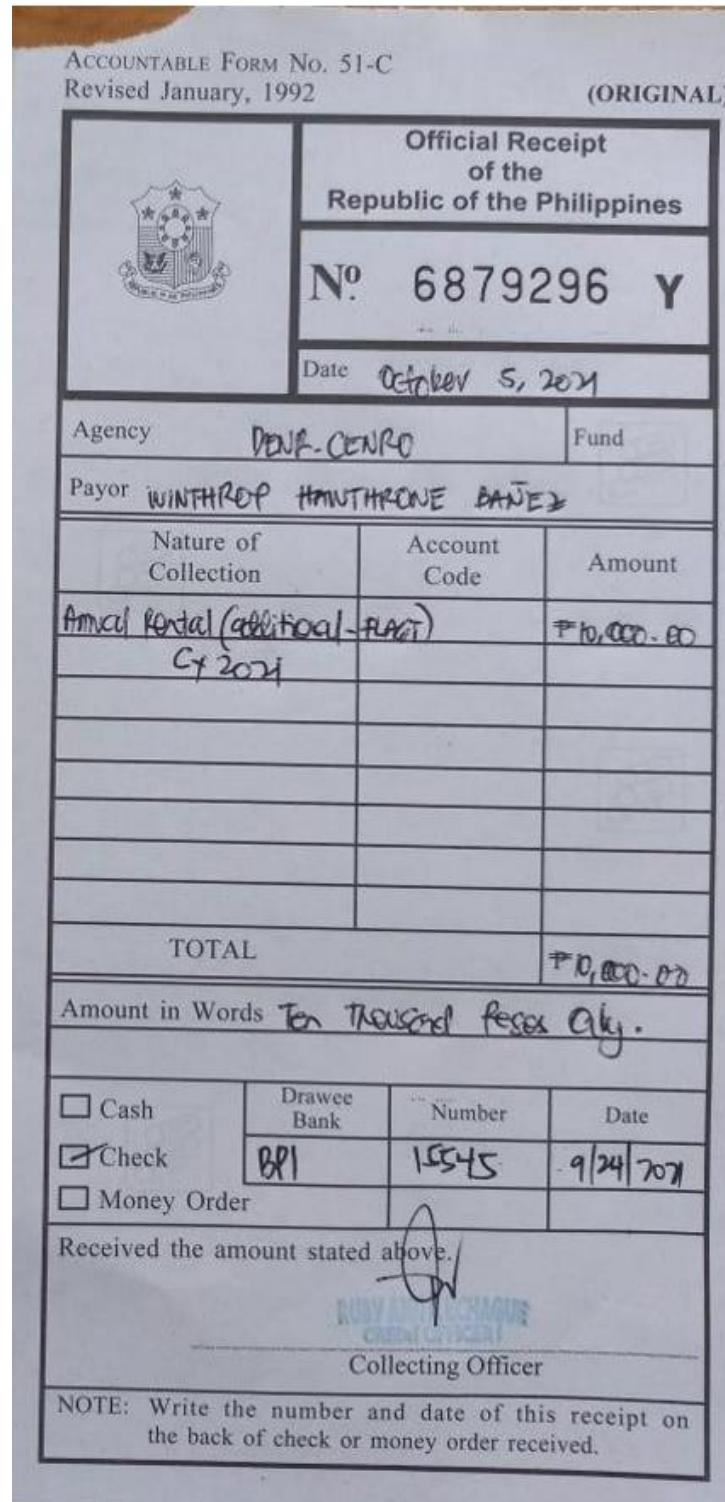 ACCOUNTABLE FORM NO. 51-C
Revised January, 1992 (ORIGINAL)
Official Receipt
of the
Republic of the Philippines
Nº. 6879296 Y
Date October 5, 2021
Agency DENR-CENRO Fund
Payor WINTHROP HAWTHRONE BAÑEZ
Nature of Collection Account Code Amount
Annual Rental (additional-FLAGT) ₱10,000.00
CY 2021
TOTAL ₱10,000.00
Amount in Words Ten Thousand Pesos Only.
Cash Drawee Bank Number Date
Check BPI 15545 9/24/2021
Money Order
Received the amount stated above.
RUBY
CREDIT OFFICER I
Collecting Officer
NOTE: Write the number and date of this receipt on
the back of check or money order received.